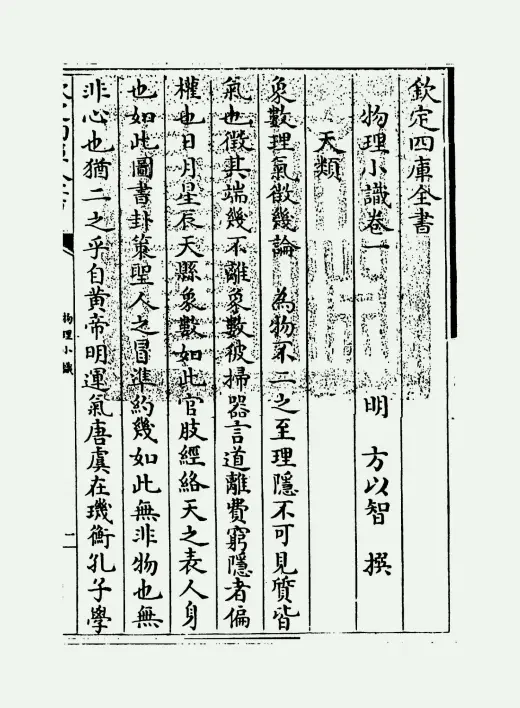 欽定四庫全書
物理小識卷一
明 方以智 撰
天類
象數理氣徵幾論 為物不二之至理隱不可見質皆
氣也徵其端幾不離象數彼掃器言道離費窮隱者偏
權也日月星辰天縣象數如此官肢經絡天之表人身
也如此圖書卦策聖人之冒準約幾如此無非物也無
非心也猶二之乎自黃帝明運氣唐虞在璣衡孔子學
物理小識
二